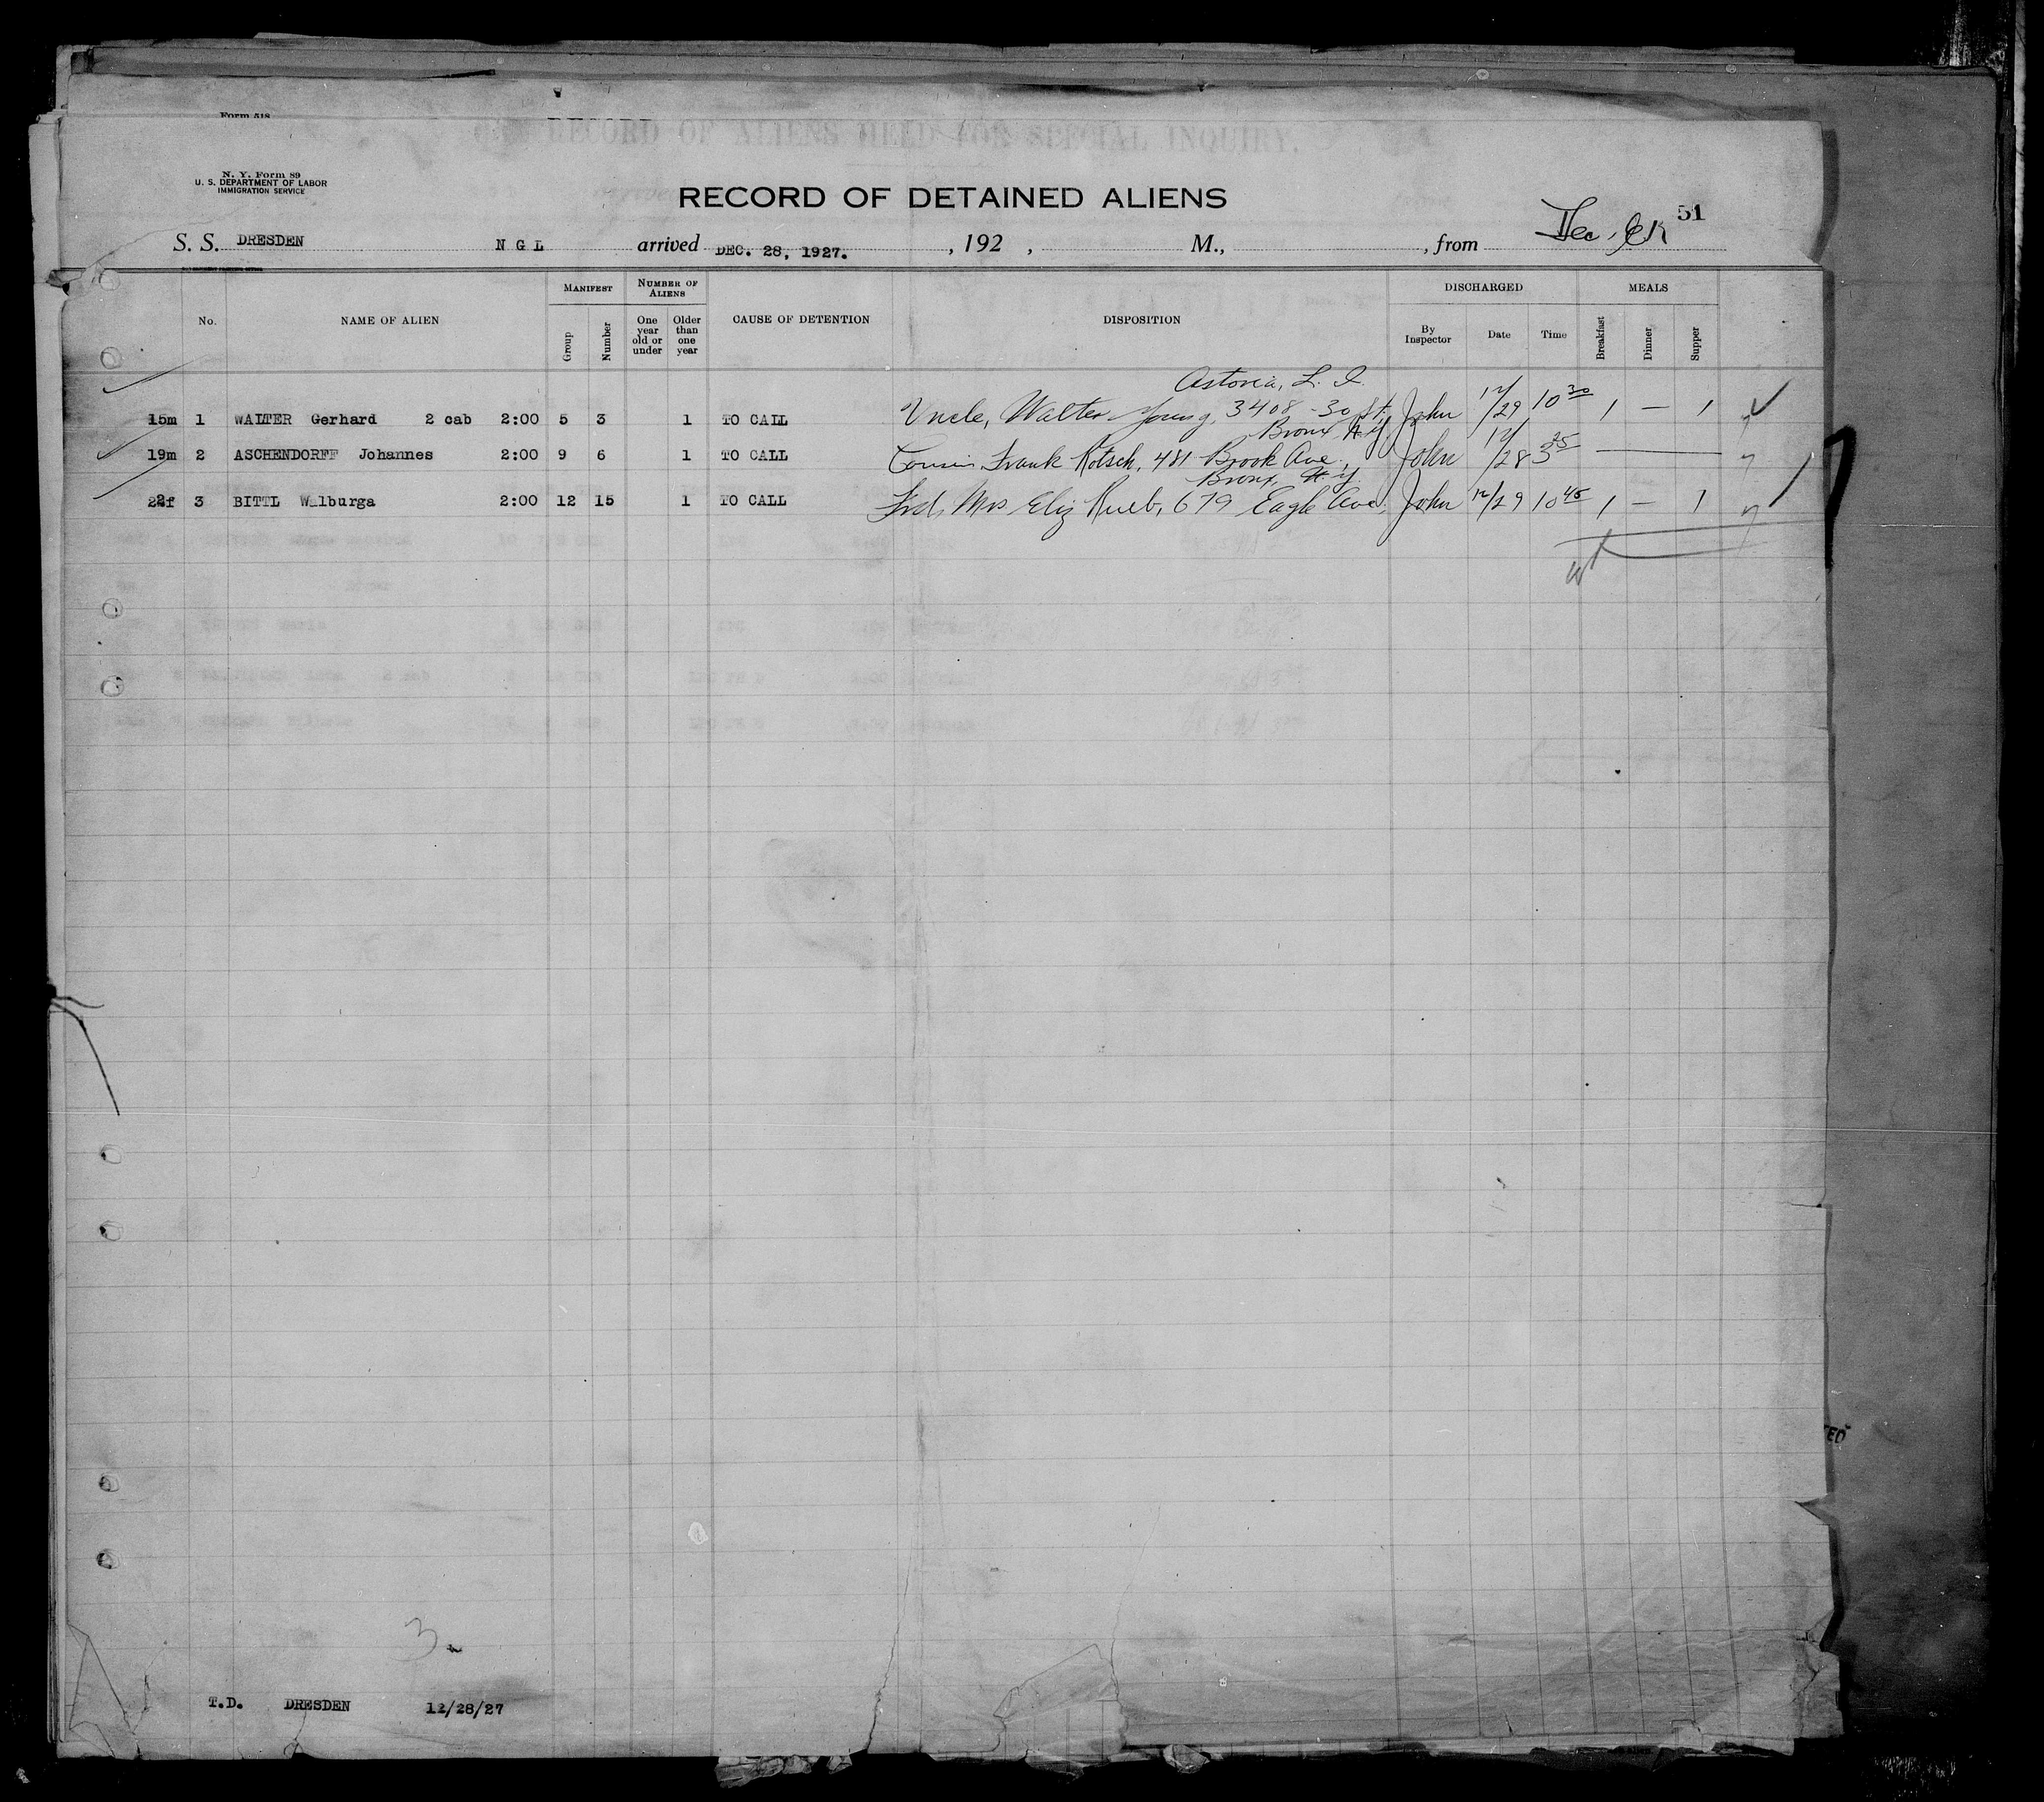 Form 518
RECORD OF ALIENS HELD FOR SPECIAL INQUIRY.
N. Y. Form 89
U. S. DEPARTMENT OF LABOR
IMMIGRATION SERVICE
RECORD OF DETAINED ALIENS
51
S. S. DRESDEN N G L arrived DEC. 28, 1927. , 192 , M., , from
MANIFEST NUMBER OF ALIENS DISCHARGED MEALS
No. NAME OF ALIEN Group Number One year old or under Older than one year CAUSE OF DETENTION DISPOSITION By Inspector Date Time Breakfast Dinner Supper
Astoria, L. I.
15m 1 WALTER Gerhard 2 cab 2:00 5 3 1 TO CALL Uncle, Walter Young, 3408 - 30 St, John 12/29 10 30 1 — 1
Bronx, N.Y.
19m 2 ASCHENDORFF Johannes 2:00 9 6 1 TO CALL Cousin, Frank Kotsch, 481 Brook Ave, John 12/28 3 25
Bronx, N.Y.
22f 3 BITTL Walburga 2:00 12 15 1 TO CALL Frd, Mrs Eliz Rueb, 679 Eagle Ave, John 12/29 10 45 1 — 1
3
T.D. DRESDEN 12/28/27